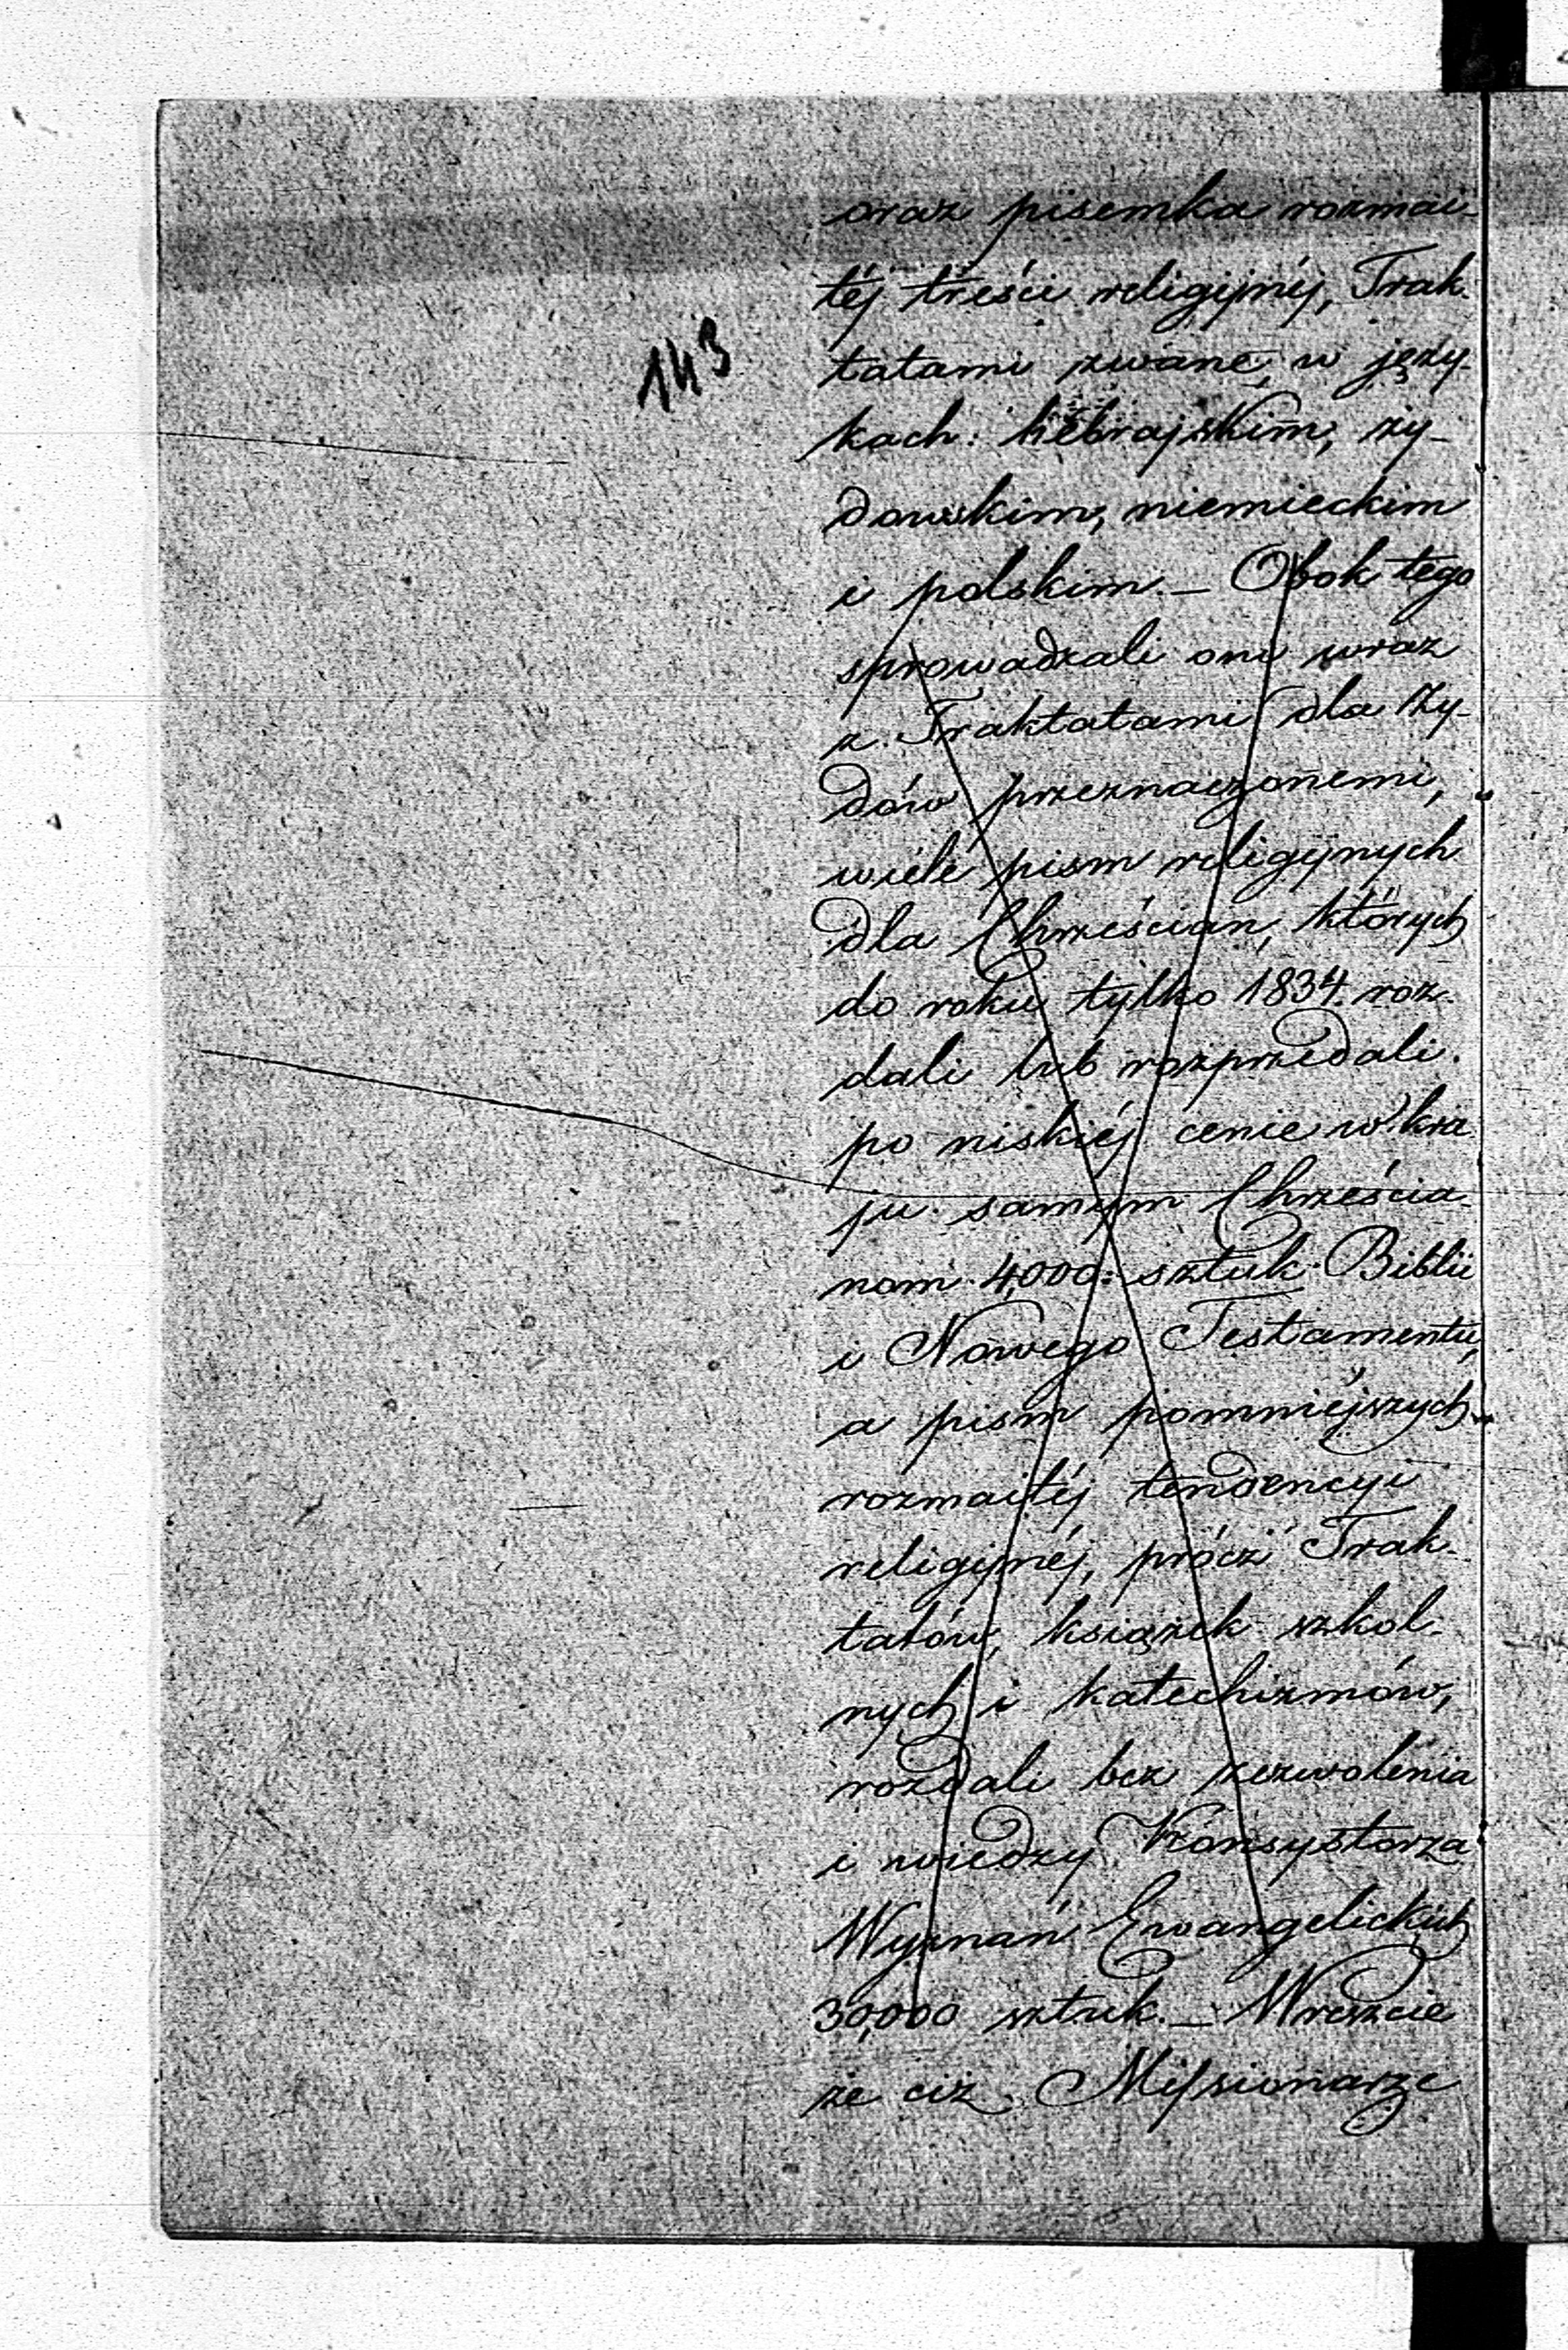 143
oraz pisemka rozmai-
téj treści religijnéj, Trak-
tatami zwane, w języ-
kach: hebrajskim, ży-
dowskim, niemieckim
i polskim. — Obok tego
sprowadzali oni wraz
z Traktatami dla Ży-
dów przeznaczonemi,
wiele pism religijnych
dla Chrześcian, których
do roku tylko 1834. roz-
dali lub rozprzedali.
po niskiéj cenie w kra
ju samym Chrześcia-
nom 4,000: sztuk Biblii
i Nowego Testamentu,
a pism pomniéjszych
rozmaitéj tendencyi
religijnéj, prócz Trak-
tatów, książek szkol-
nych i katechizmów,
rozdali bez zezwolenia
i wiedzy Konsystorza
Wyznań Ewangelickich
30,000 sztuk. — Wreszcie
że ciż Missionarze